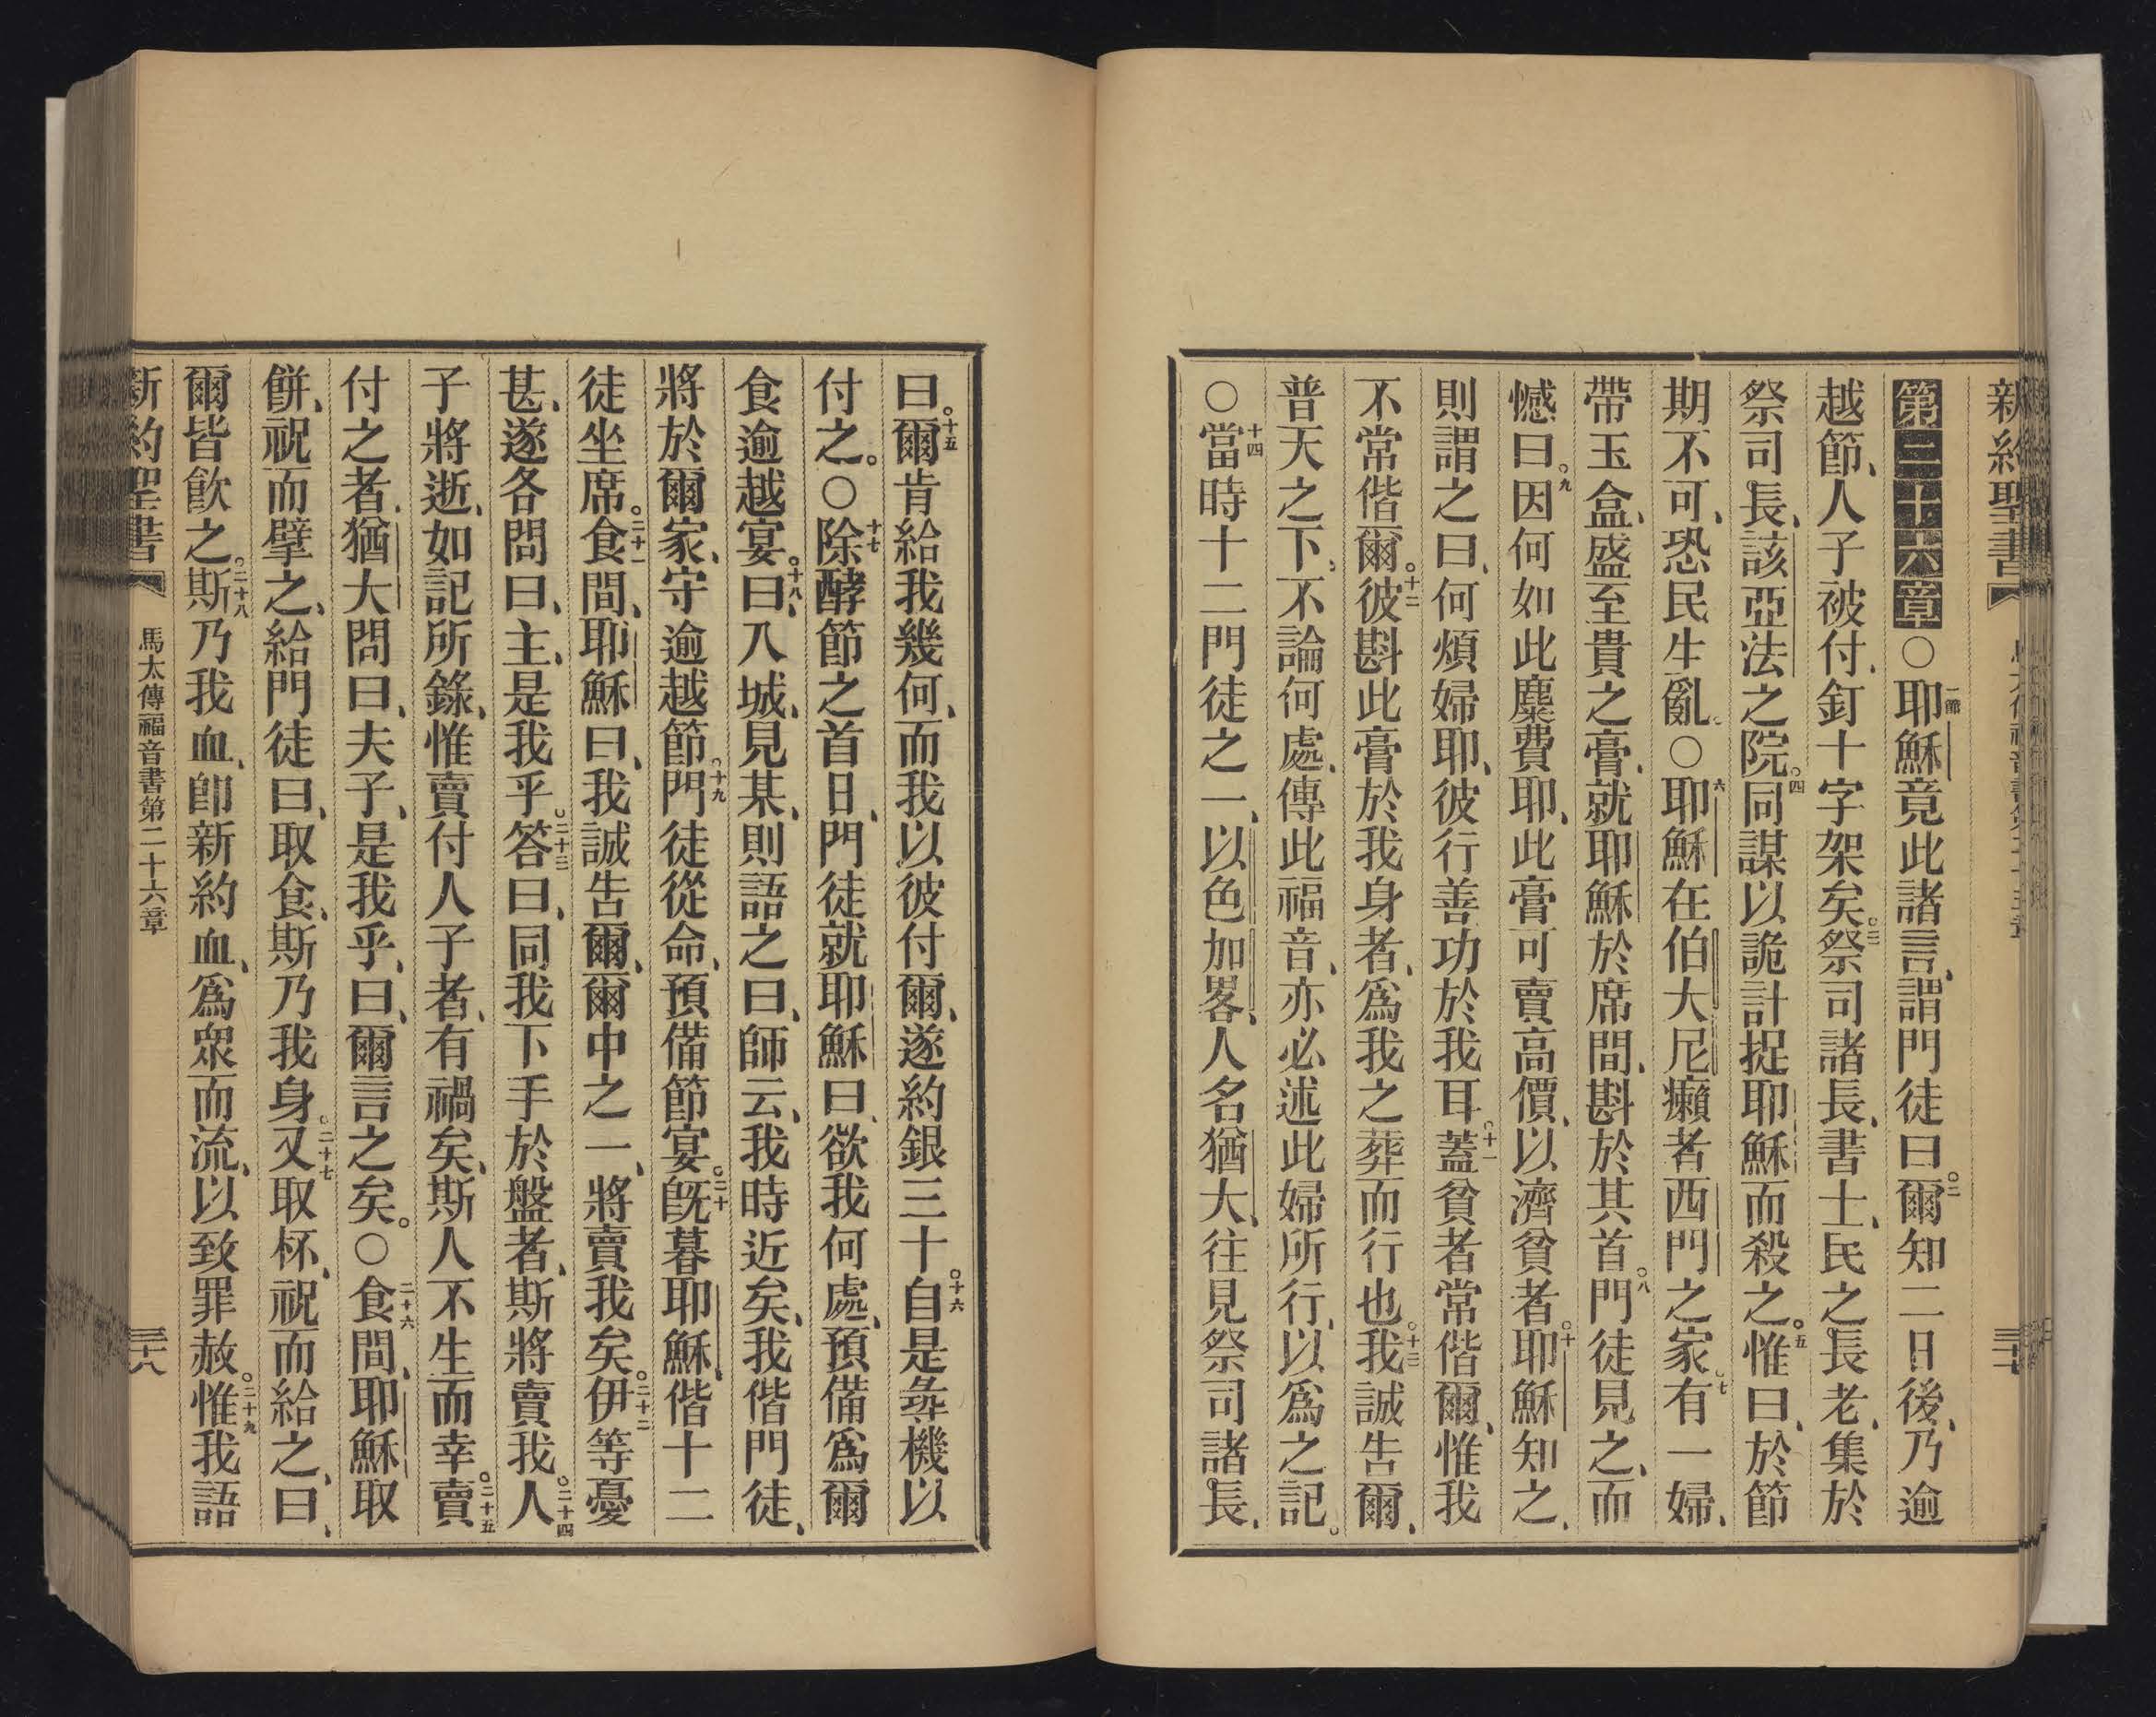 新約聖書
三十七
第二十六章○一節耶穌竟此諸言、謂門徒曰。二爾知二日後、乃逾
越節、人子被付、釘十字架矣。三祭司諸長、書士、民之長老、集於
祭司長、該亞法之院。四同謀以詭計捉耶穌而殺之。五惟曰、於節
期不可、恐民生亂。○六耶穌在伯大尼癩者西門之家。七有一婦、
帶玉盒、盛至貴之膏、就耶穌於席間、斟於其首。八門徒見之、而
憾曰。九因何如此麋費耶、此膏可賣高價、以濟貧者。十耶穌知之、
則謂之曰、何煩婦耶、彼行善功於我耳。十一蓋貧者常偕爾、惟我
不常偕爾。十二彼斟此膏於我身者、爲我之葬而行也。十三我誠告爾、
普天之下、不論何處、傳此福音、亦必述此婦所行、以爲之記。
○十四當時十二門徒之一、以色加畧、人名猶大、往見祭司諸長、
曰。十五爾肯給我幾何、而我以彼付爾、遂約銀三十。十六自是彘機以
付之。○十七除酵節之首日、門徒就耶穌曰、欲我何處、預備爲爾
食逾越宴。十八曰、入城、見某、則語之曰、師云、我時近矣、我偕門徒、
將於爾家、守逾越節。十九門徒從命、預備節宴。二十旣暮耶穌、偕十二
徒坐席。二十一食間、耶穌曰、我誠告爾、爾中之一、將賣我矣。二十二伊等憂
甚、遂各問曰、主、是我乎。二十三答曰、同我下手於盤者、斯將賣我。二十四人
子將逝、如記所錄、惟賣付人子者、有禍矣、斯人不生而幸。二十五賣
付之者、猶大問曰、夫子、是我乎、曰、爾言之矣。○二十六食間、耶穌取
餅、祝而擘之、給門徒曰、取食、斯乃我身。二十七又取杯、祝而給之、曰、
爾皆飮之。二十八斯乃我血、卽新約血、爲眾而流、以致罪赦。二十九惟我語
新約聖書 馬太傳福音書第二十六章 三十八